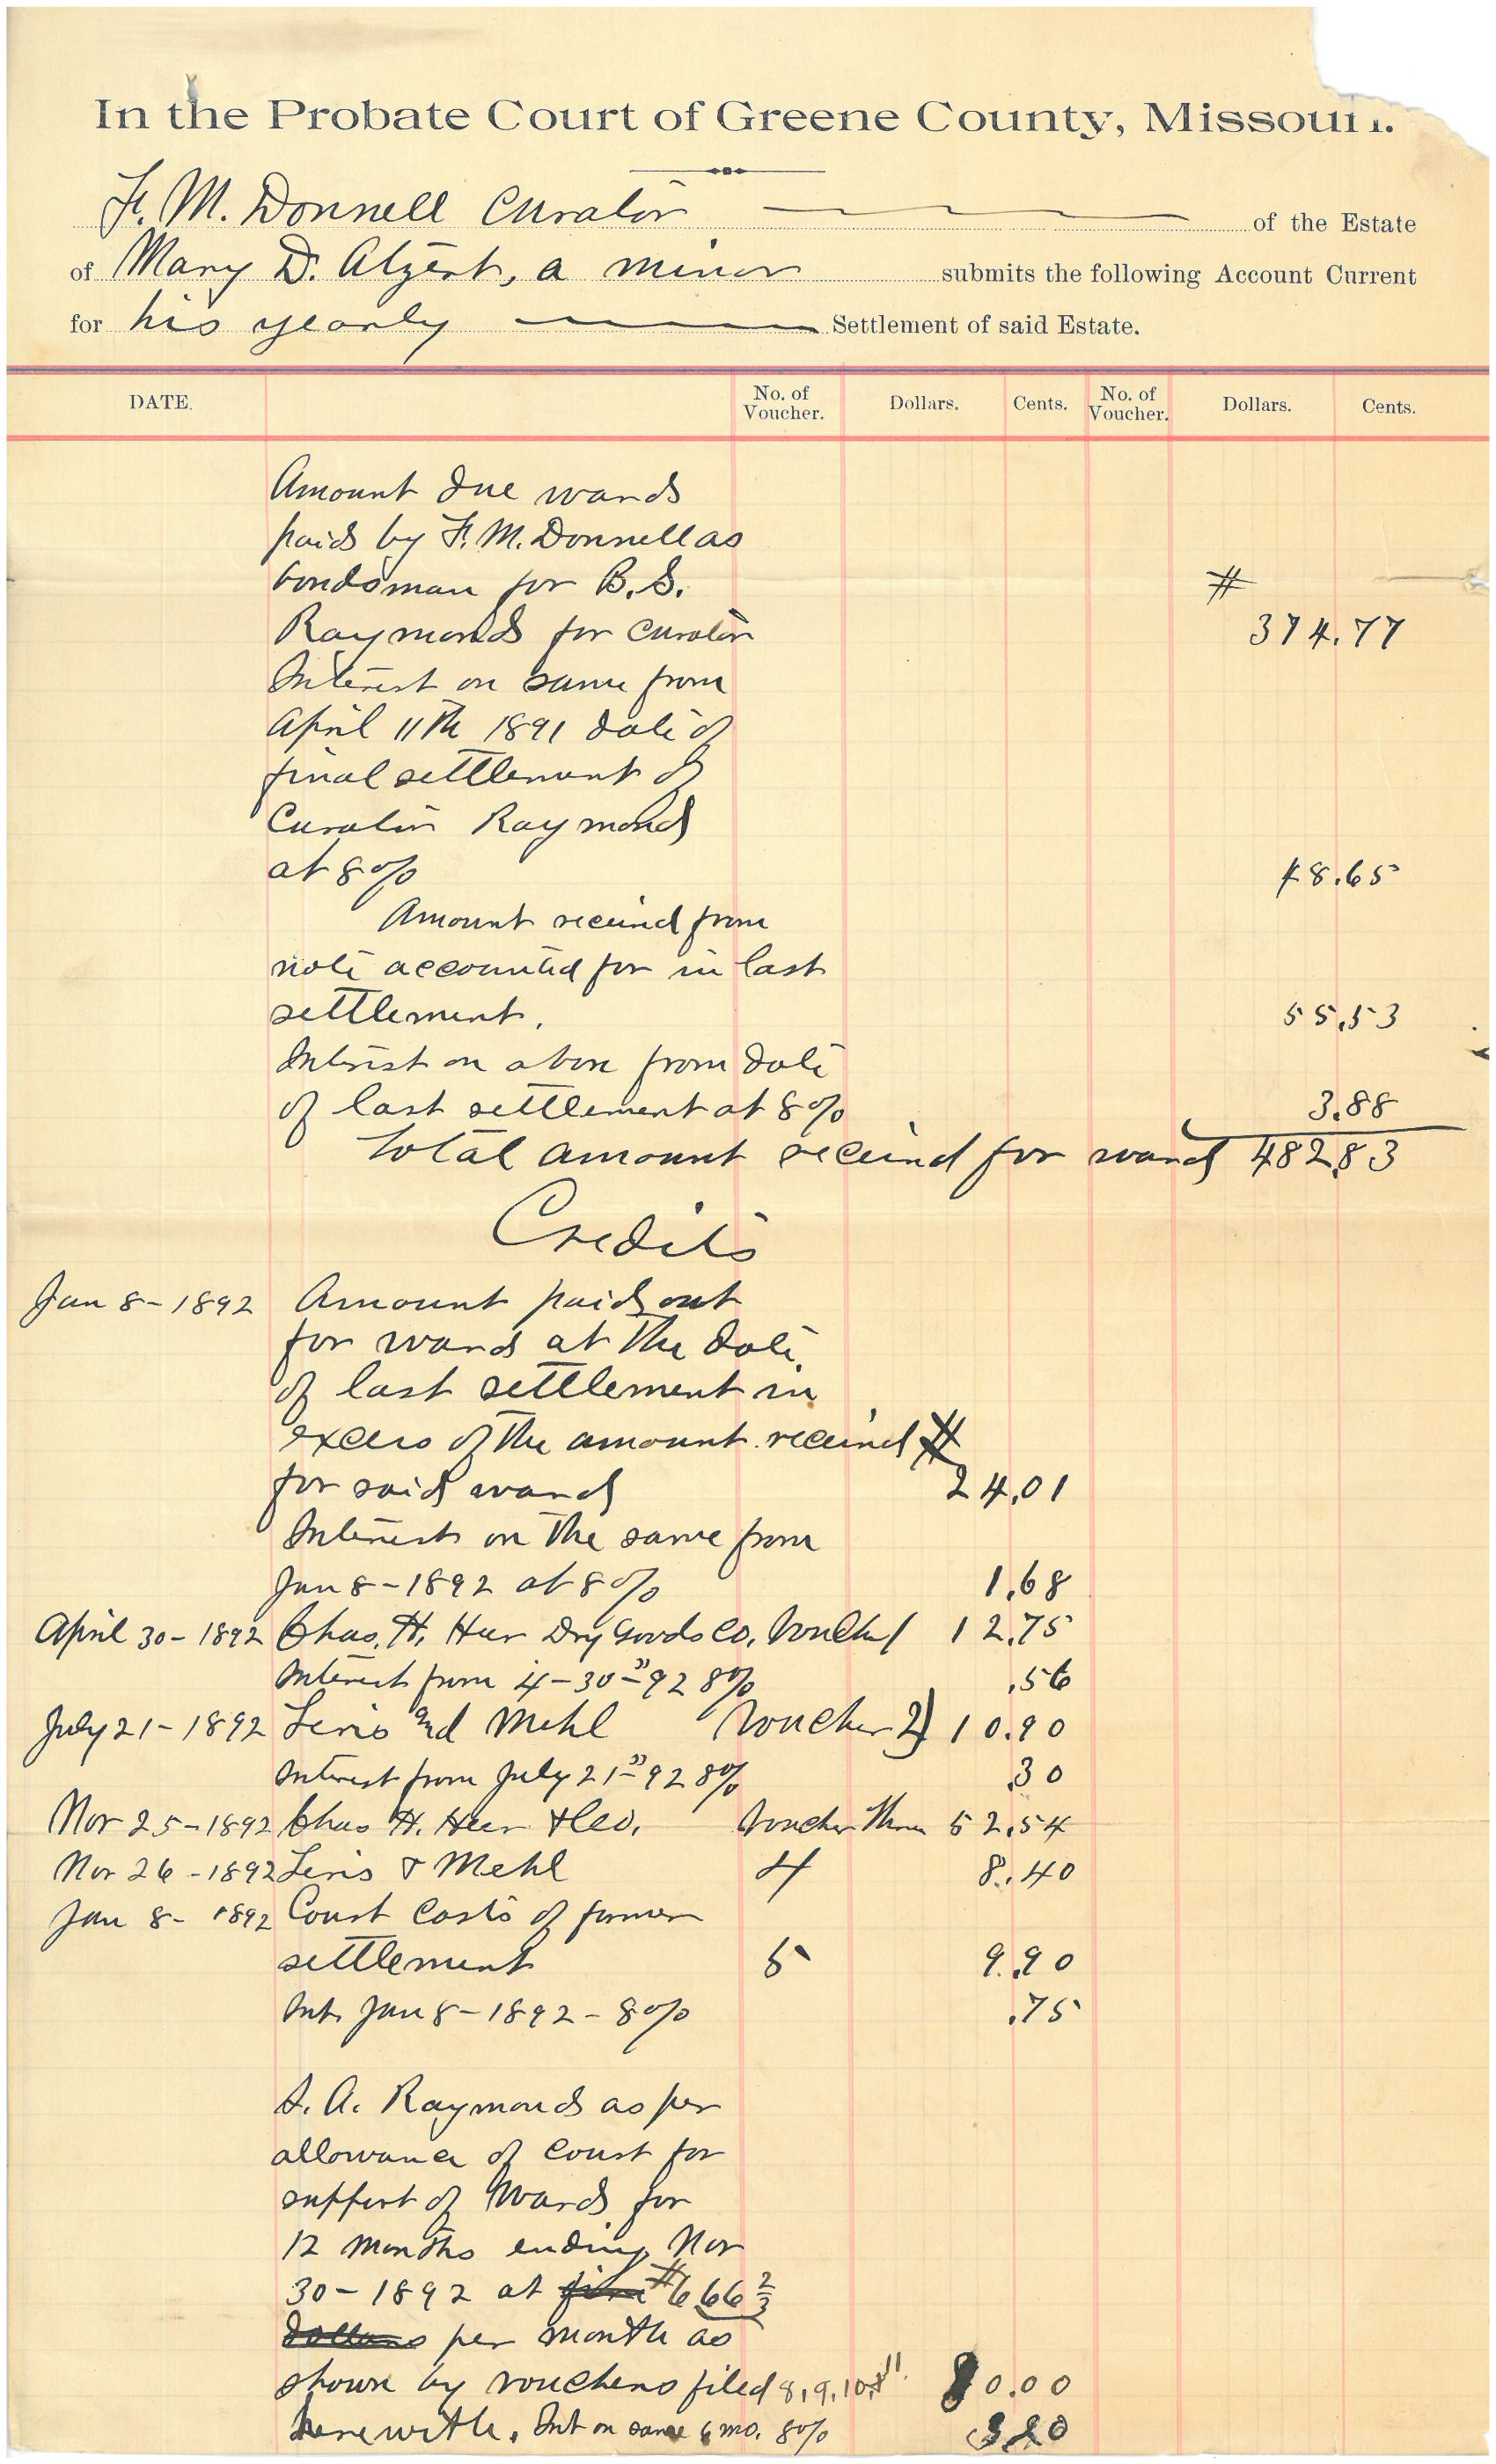 In the Probate Court of Greene County, Missouri.
F. M. Donnell Curator of the Estate
of Mary D. Alzert, a minor submits the following Account Current
for his yearly Settlement of said Estate.
DATE. No. of Voucher. Dollars. Cents. No. of Voucher. Dollars. Cents.
Amount due ward
paid by F. M. Donnell as
bondsman for B. S. #
Raymond for curator 374.77
Interest on same from
April 11th 1891 date of
final settlement of
Curator Raymond
at 8% 48.65
Amount received from
note accounted for in last
settlement. 55.53
Interest on above from date
of last settlement at 8% 3.88
Total amount received for ward 482.83
Credits
Jan 8-1892 Amount paid out
for ward at the date
of last settlement in
excess of the amount received #
for said ward 24.01
Interest on the same from
Jan 8-1892 at 8% 1.68
April 30-1892 Chas. H. Heer Dry Goods Co. Voucher 1 12.75
Interest from 4-30-92 8% .56
July 21-1892 and Mehl Voucher 2 10.90
Interest from July 21-92 8% .30
Nov 25-1892 Chas H. Heer & Co. Voucher Three 52.54
Nov 26-1892 & Mehl 4 8.40
Jan 8-1892 Court Costs of former
settlement 5 9.90
Int. Jan 8-1892-8% .75
A. Raymond as per
allowance of Court for
support of Ward for
12 months ending Nov
30-1892 at five #6 66 2/3
dollars per month as
shown by vouchers filed 8, 9, 10, & 11. 80.00
herewith. Int on same 6 mo. 8% 3.20